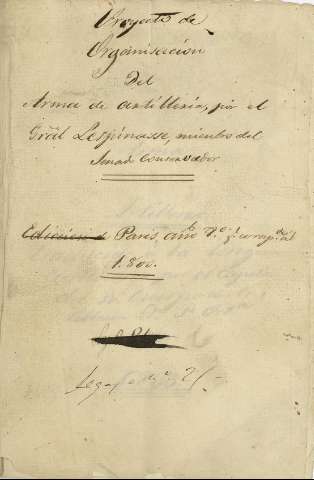 Proyecto de
Organisacion
Del
Arma de artilleria, por el
Gral Lespinasse, miembro del
Senado Conservador
Edicion de Paris, año 7.º
1.800.